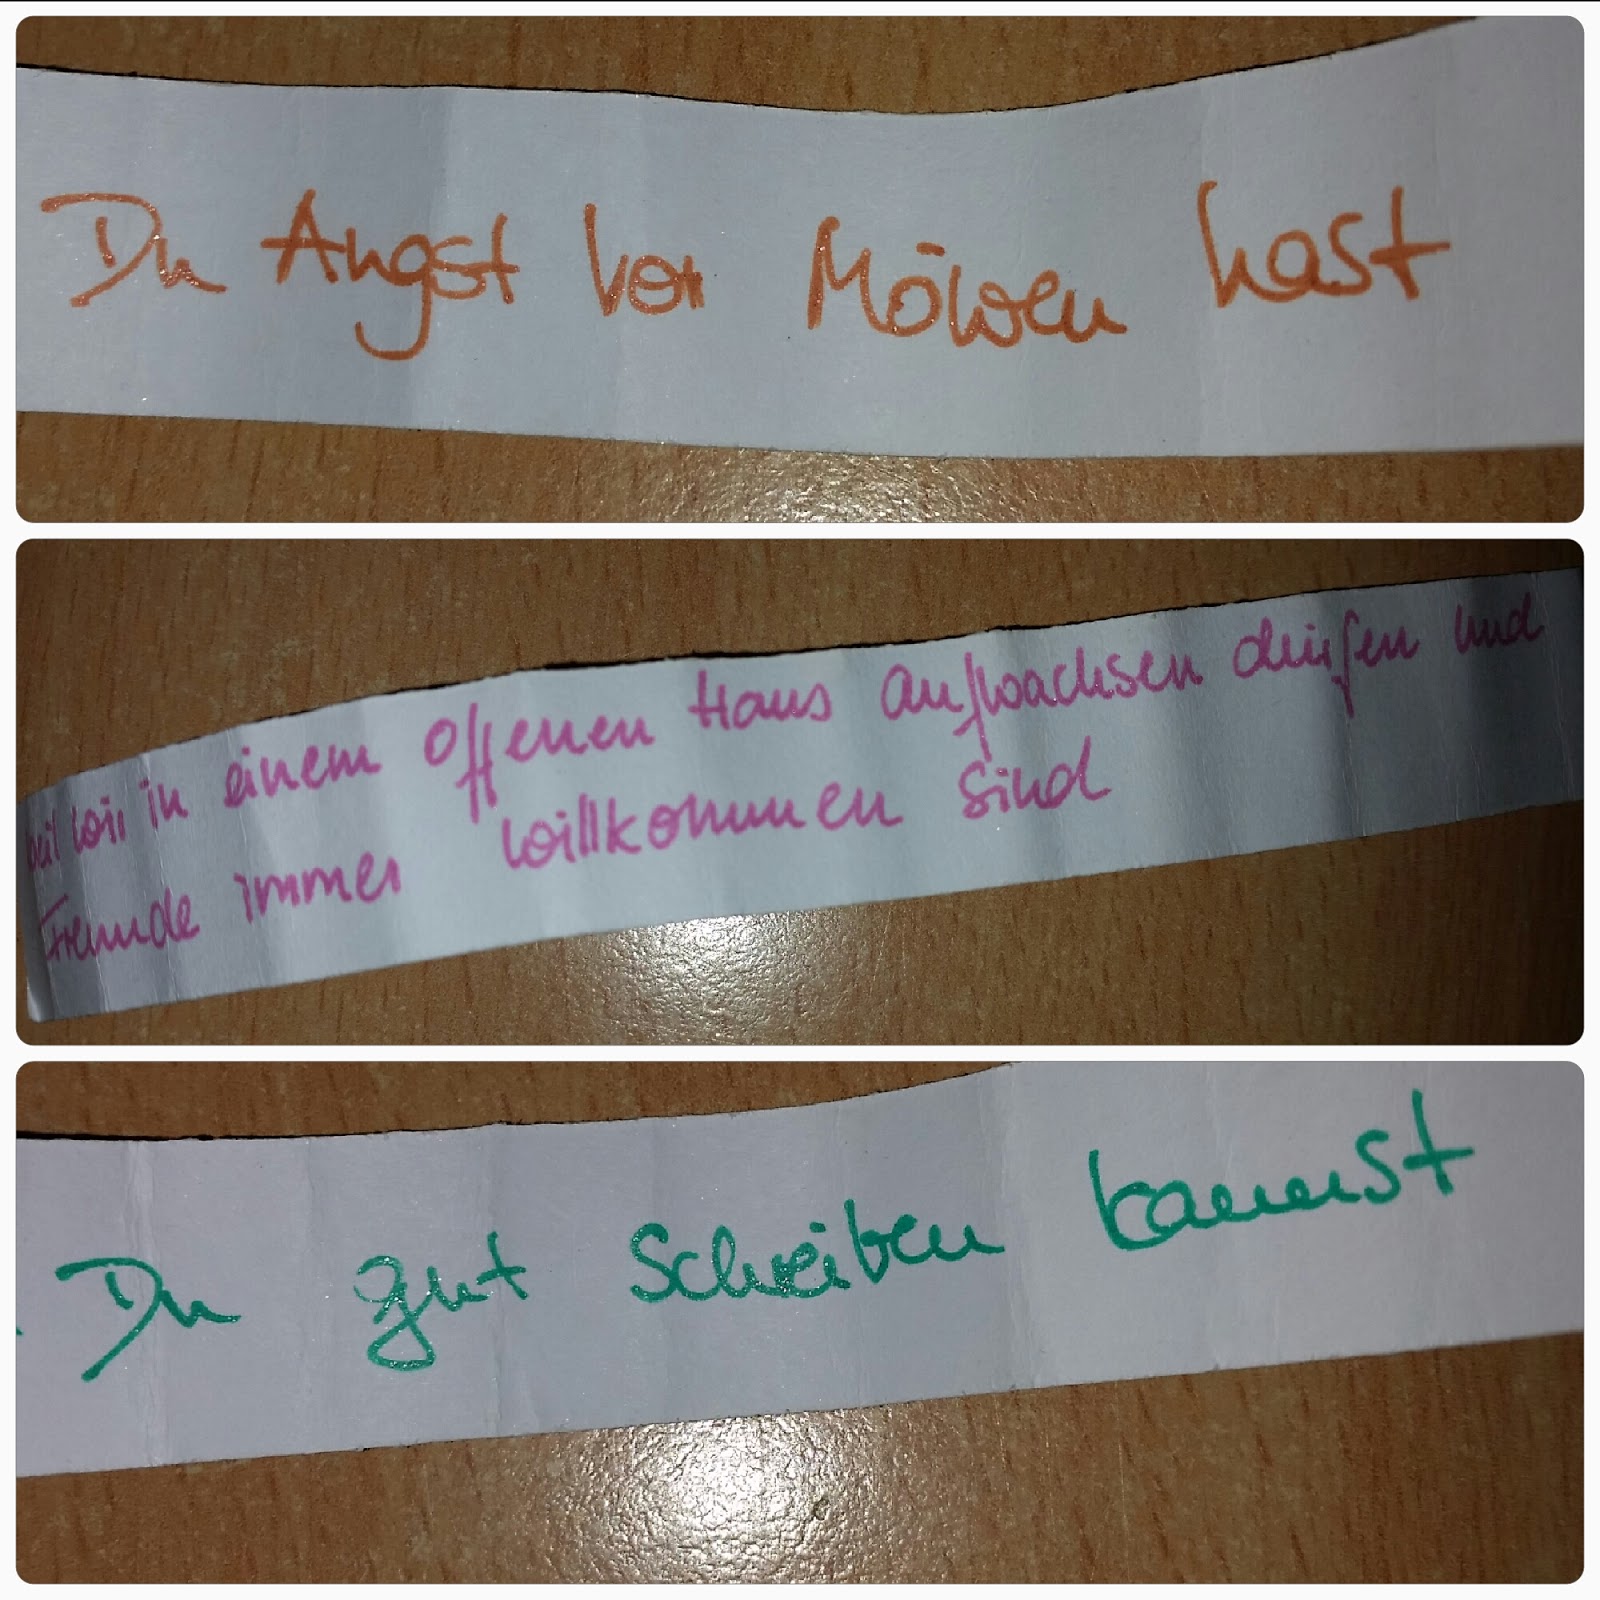 Du Angst vor Möwen hast
weil wir in einem offenen Haus aufwachsen dürfen und
Freunde immer willkommen sind
Du gut schreiben kannst